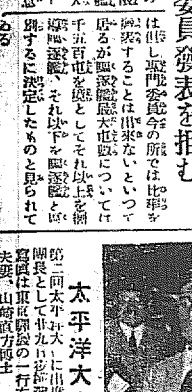 委員發表を拒む
は但し專門委員會の所では比率を
發表することは出來ないといつて
居るが驅逐艦最大屯數については
千五百屯を奌としてそれ以上を嚮
導驅逐艦、それ以下を驅逐艦と區
別するに決定したものと見られて
ゐる
太平洋大
第二回太平洋大
團長として
寫眞は東京驛發の一行
夫妻、山崎直方博士